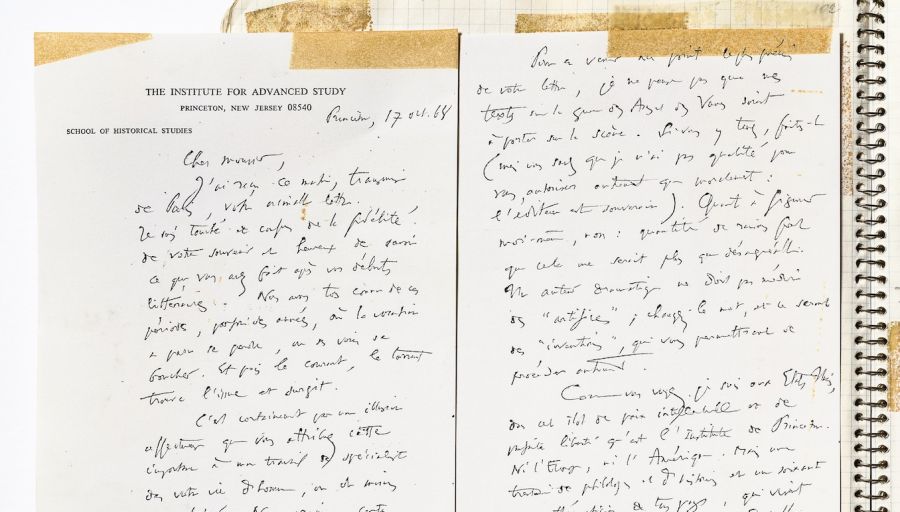 THE INSTITUTE FOR ADVANCED STUDY
PRINCETON, NEW JERSEY 08540
SCHOOL OF HISTORICAL STUDIES
Princeton, 17 oct. 68
Cher monsieur,
J'ai reçu ce matin, transmise
de Paris, votre aimable lettre.
Je suis touché et confus de la fidélité
de votre souvenir et heureux de savoir
ce que vous avez fait après vos débuts
littéraires. Nous avons tous connu de ces
périodes, parfois des années, où la vocation
a paru se perdre, ou se
boucher. Et puis le courant, le torrent
trouve l'issue et surgit.
C'est certainement par une illusion
affectueuse que vous attribuez cette
importance à mon travail de spécialiste
dans votre vie d'homme, ou du moins
102
Pour en venir au point le plus précis
de votre lettre, je ne pense pas que mes
textes sur la guerre des Ases et des Vanes soient
à porter sur la scène. Si vous y tenez, faites-le
(mais vous savez que je n'ai pas qualité pour
vous autoriser autrement que moralement :
l'éditeur est souverain). Quant à figurer
moi-même, non : quantité de raisons font
que cela me serait plus que désagréable.
Un auteur dramatique ne doit pas
des "artifices" ; changez le mot, et ce seront
des "inventions", qui vous permettront de
procéder autrement.
Comme vous voyez, je suis aux Etats-Unis,
dans cet îlot de paix intellectuelle et de
parfaite liberté qu'est l'Institute de Princeton.
Ni l'Europe, ni l'Amérique. Mais une
de philologues et d'historiens et un
de tous pays, qui vivent